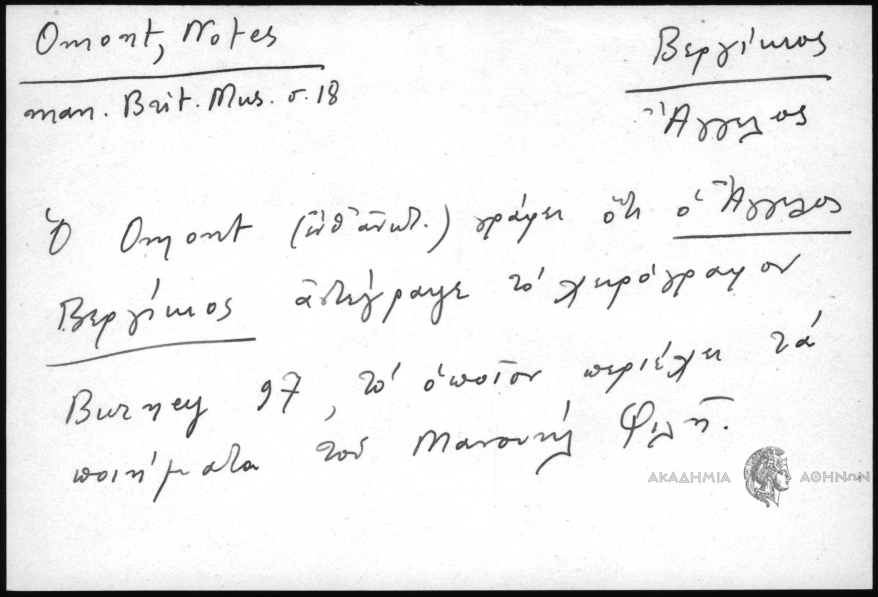 Omont, Notes
man. Brit. Mus. σ. 18
Βεργίκιος
Ἄγγελος
Ὁ Omont (ἔνθ' ἀνωτ.) γράφει ὅτι ὁ Ἄγγελος
Βεργίκιος ἀντέγραψε τὸ χειρόγραφον
Burney 97, τὸ ὁποῖον περιέχει τὰ
ποιήματα τοῦ Μανουὴλ Φιλῆ.
ΑΚΑΔΗΜΙΑ ΑΘΗΝΩΝ